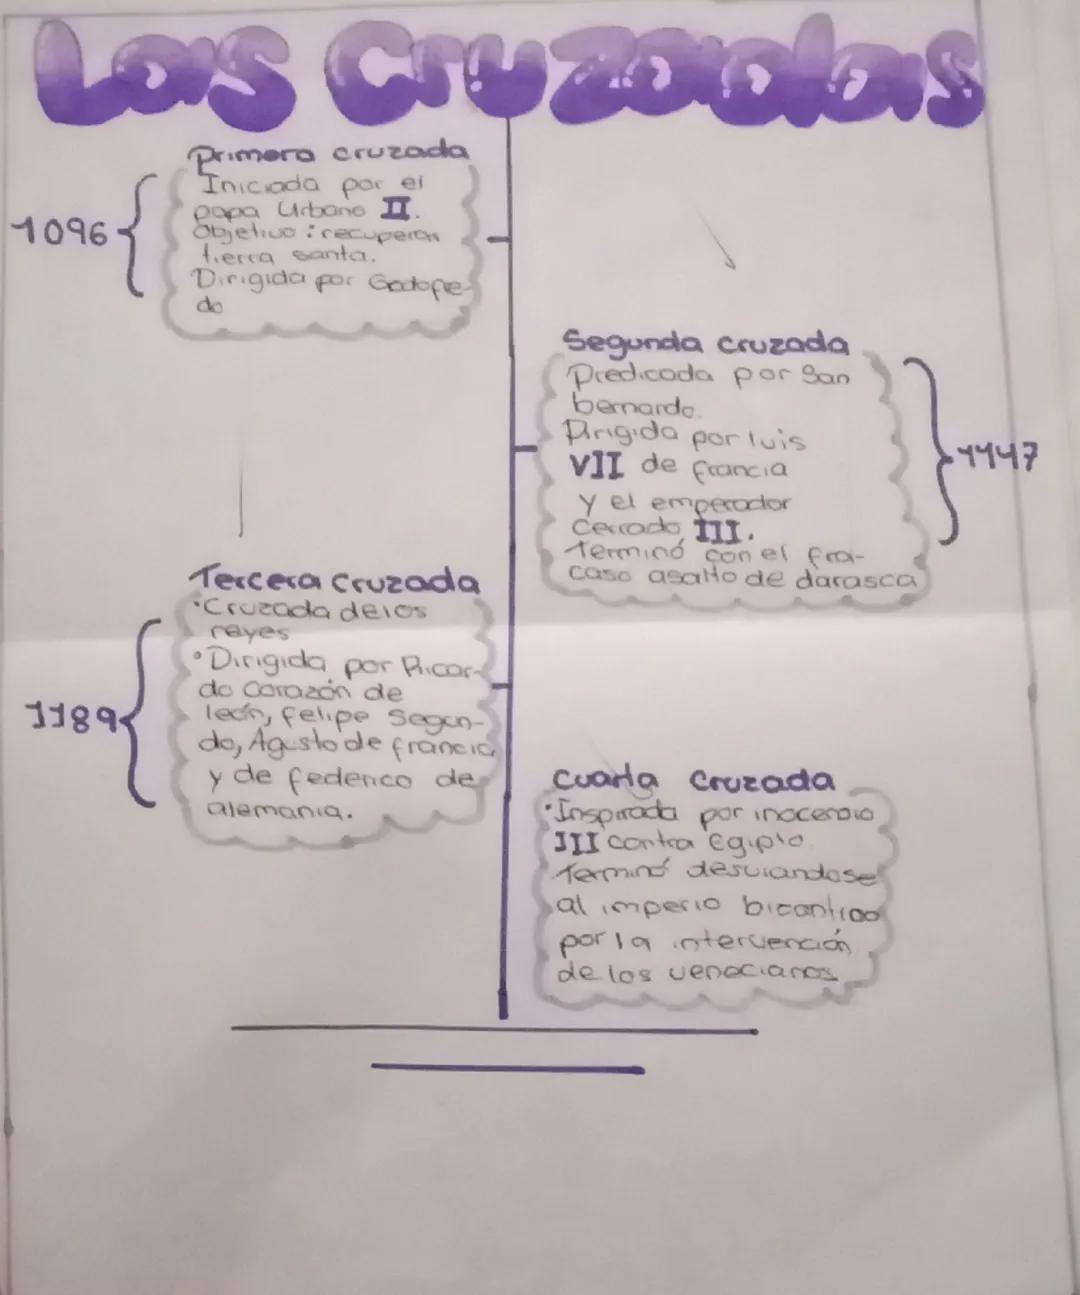 Las Cruzadas
Primera cruzada
Iniciada por el
papa Urbano II.
Objetivo : recuperar
tierra santa.
Dirigida por Godofre-
do
1096
Segunda cruzada
Predicada por San
bernardo.
Dirigida por luis
VII de francia
y el emperador
Cerrado III.
Terminó con el fra-
caso asalto de darasca
1147
Tercera cruzada
·Cruzada de los
reyes
·Dirigida por Ricar-
do Corazón de
león, felipe Segun-
do, Agusto de francia
y de federico de
alemania.
1189
Cuarta Cruzada
·Inspirada por inocencio
III contra Egipto.
Terminó desviandose
al imperio bizantino
por la intervención
de los venecianos